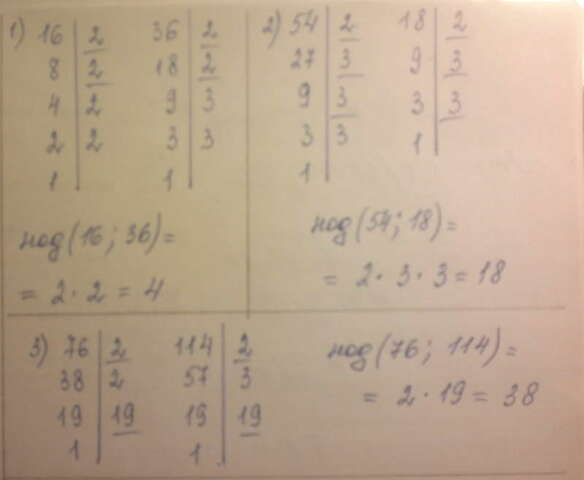 1) 16 | 2 36 | 2
8 | 2 18 | 2
4 | 2 9 | 3
2 | 2 3 | 3
1 | 1 |
нод(16; 36) =
= 2 · 2 = 4
2) 54 | 2 18 | 2
27 | 3 9 | 3
9 | 3 3 | 3
3 | 3 1 |
1 |
нод(54; 18) =
= 2 · 3 · 3 = 18
3) 76 | 2 114 | 2
38 | 2 57 | 3
19 | 19 19 | 19
1 | 1 |
нод(76; 114) =
= 2 · 19 = 38